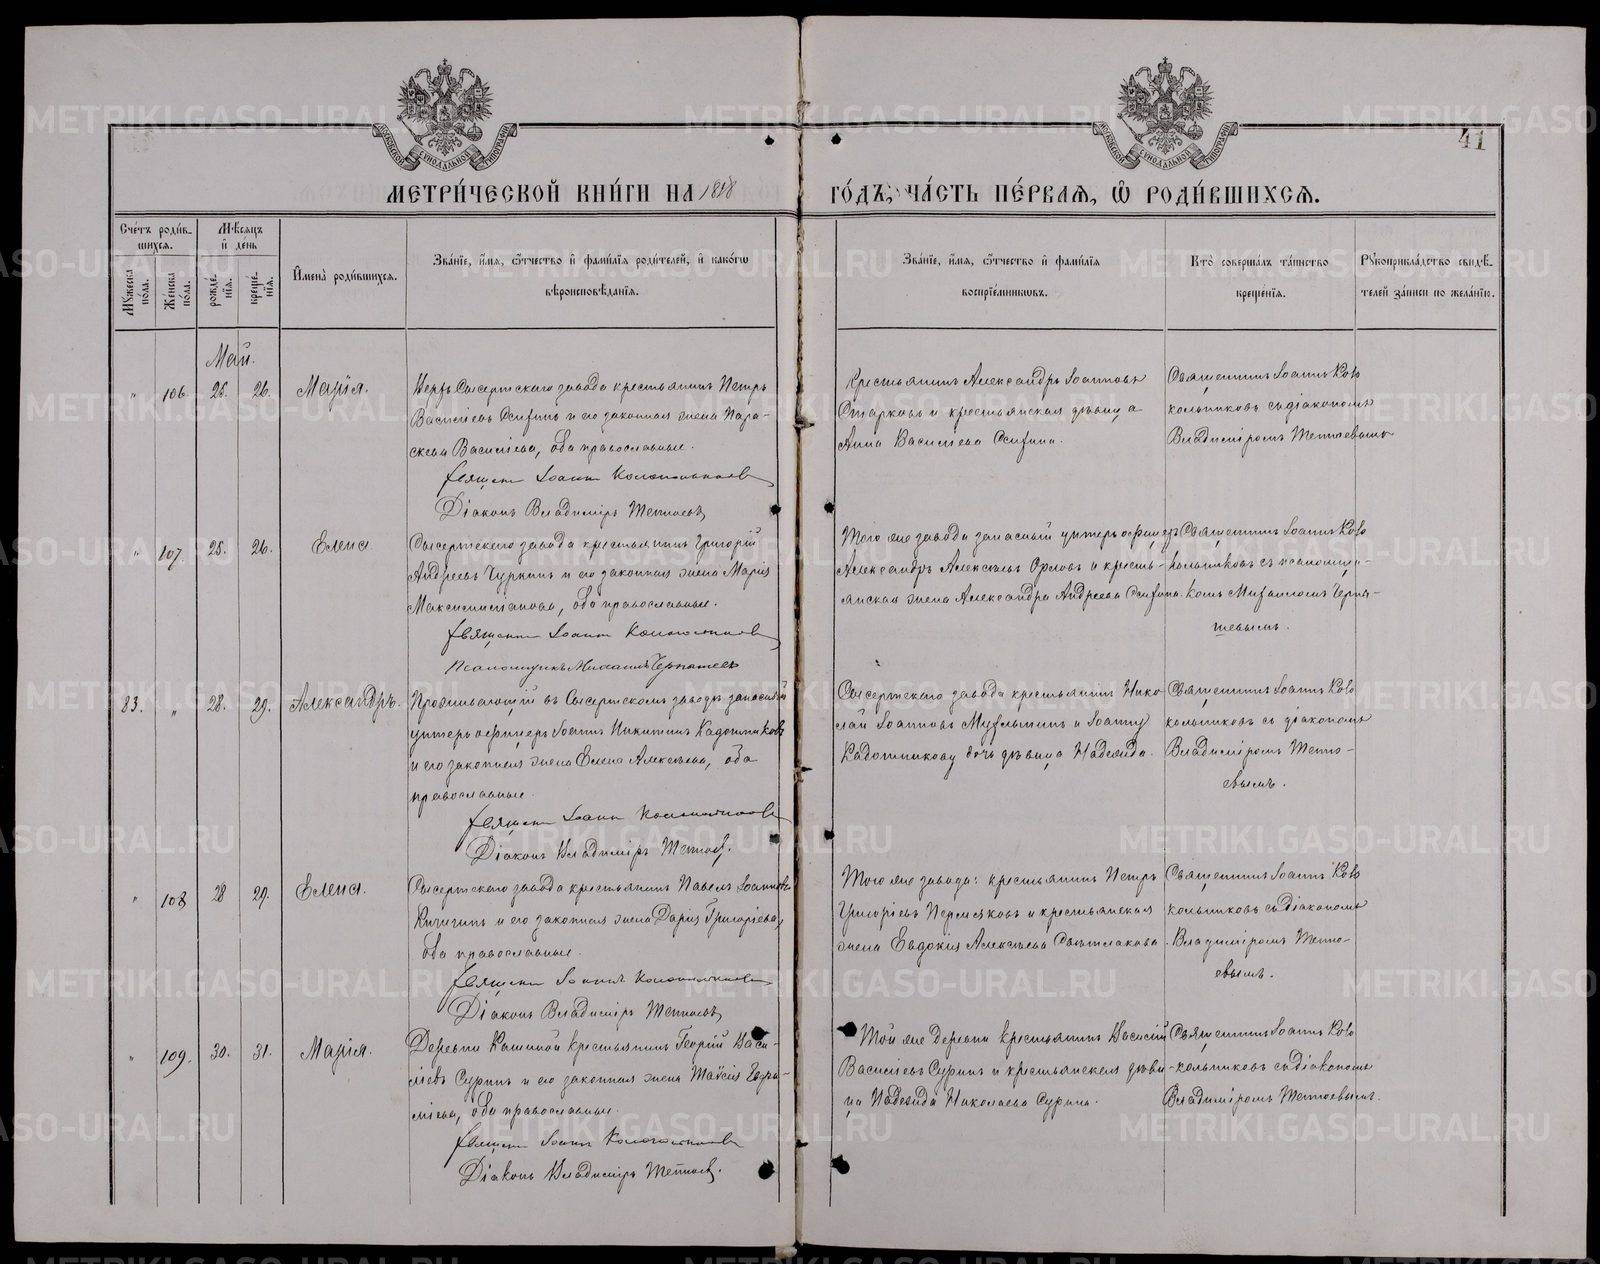 МОСКОВСКОЙ СѴНОДАЛЬНОЙ ТИПОГРАФІИ
МОСКОВСКОЙ СѴНОДАЛЬНОЙ ТИПОГРАФІИ
41
МЕТРИ́ЧЕСКОЙ КНИ́ГИ НА
ГО́ДЪ, ЧА́СТЬ ПЕ́РВАѦ, Ѡ҆ РОДИ́ВШИХСѦ.
Сче́тъ роди́в-
шихсѧ.
Мѣ́сѧцъ
и҆ де́нь
Му́жеска по́ла.
Же́нска по́ла.
рожде́нїѧ.
креще́нїѧ.
И҆мена̀ роди́вшихсѧ.
Зва́нїе, и҆́мѧ, ѻ҆́тчество и҆ фами́лїѧ роди́телей, и҆ како́гѡ
вѣроисповѣ́данїѧ.
Зва́нїе, и҆́мѧ, ѻ҆́тчество и҆ фами́лїѧ
воспрїе́мникѡвъ.
Кто̀ соверша́лъ та́инство
креще́нїѧ.
Рꙋкоприкла́дство свидѣ́-
телей за́писи по жела́нїю.
Май.
" 106. 25. 26. Марія.
Сысертскаго завода крестьянинъ Петръ
Василіевъ и его законная жена Пара-
скева Василіева, оба православные.
Священ. Іоаннъ Колокольниковъ
Діаконъ Владиміръ Тетюевъ
Крестьянинъ Александръ Іоанновъ
Старковъ и крестьянская дѣвица
Анна Василіева
Священникъ Іоаннъ Коло
кольниковъ съ діакономъ
Владиміромъ Тетюевымъ
" 107. 25. 26. Елена
Сысертскаго завода крестьянинъ Григорій
Андреевъ Чуркинъ и его законная жена Марія
Максимиліанова, оба православные.
Священ. Іоаннъ Колокольниковъ
Псаломщикъ Михаилъ
Того же завода запасный унтеръ офицеръ
Александръ Алексѣевъ Орловъ и кресть-
янская жена Александра Андреева
Священникъ Іоаннъ Коло
кольниковъ съ псаломщи-
комъ Михаиломъ
83. " 28. 29. Александръ.
Проживающій въ Сысертскомъ заводѣ запасный
унтеръ офицеръ Іоаннъ Никитинъ Кадошниковъ
и его законная жена Елена Алексѣева, оба
православные.
Священ. Іоаннъ Колокольниковъ
Діаконъ Владиміръ Тетюевъ.
Сысертскаго завода крестьянинъ Нико
лай Іоанновъ и Іоанну
Кадошникову дочь дѣвица Надежда.
Священникъ Іоаннъ Коло
кольниковъ съ діакономъ
Владиміромъ Тетю-
евымъ.
" 108 28 29. Елена.
Сысертскаго завода крестьянинъ Павелъ Іоанновъ
и его законная жена Дарія Григоріева,
оба православные.
Священ. Іоаннъ Колокольниковъ
Діаконъ Владиміръ Тетюевъ
Того же завода: крестьянинъ Петръ
Григоріевъ Пермяковъ и крестьянская
жена Евдокія Алексѣева Свѣтлакова.
Священникъ Іоаннъ Коло
кольниковъ съ діакономъ
Владиміромъ Тетю-
евымъ.
" 109. 30. 31. Марія.
Деревни Кашиной крестьянинъ Георгій Васи-
ліевъ Суринъ и его законная жена
оба православные.
Священ. Іоаннъ Колокольниковъ
Діаконъ Владиміръ Тетюевъ.
Той же деревни крестьянинъ Василій
Василіевъ Суринъ и крестьянская дѣви-
ца Надежда Николаева Сурина.
Священникъ Іоаннъ Коло
кольниковъ съ діакономъ
Владиміромъ Тетюевымъ.
METRIKI.GASO-URAL.RU